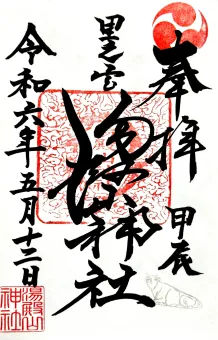 奉拝
甲辰
里宮
湯殿山神社
令和六年五月十三日
湯殿山
神社